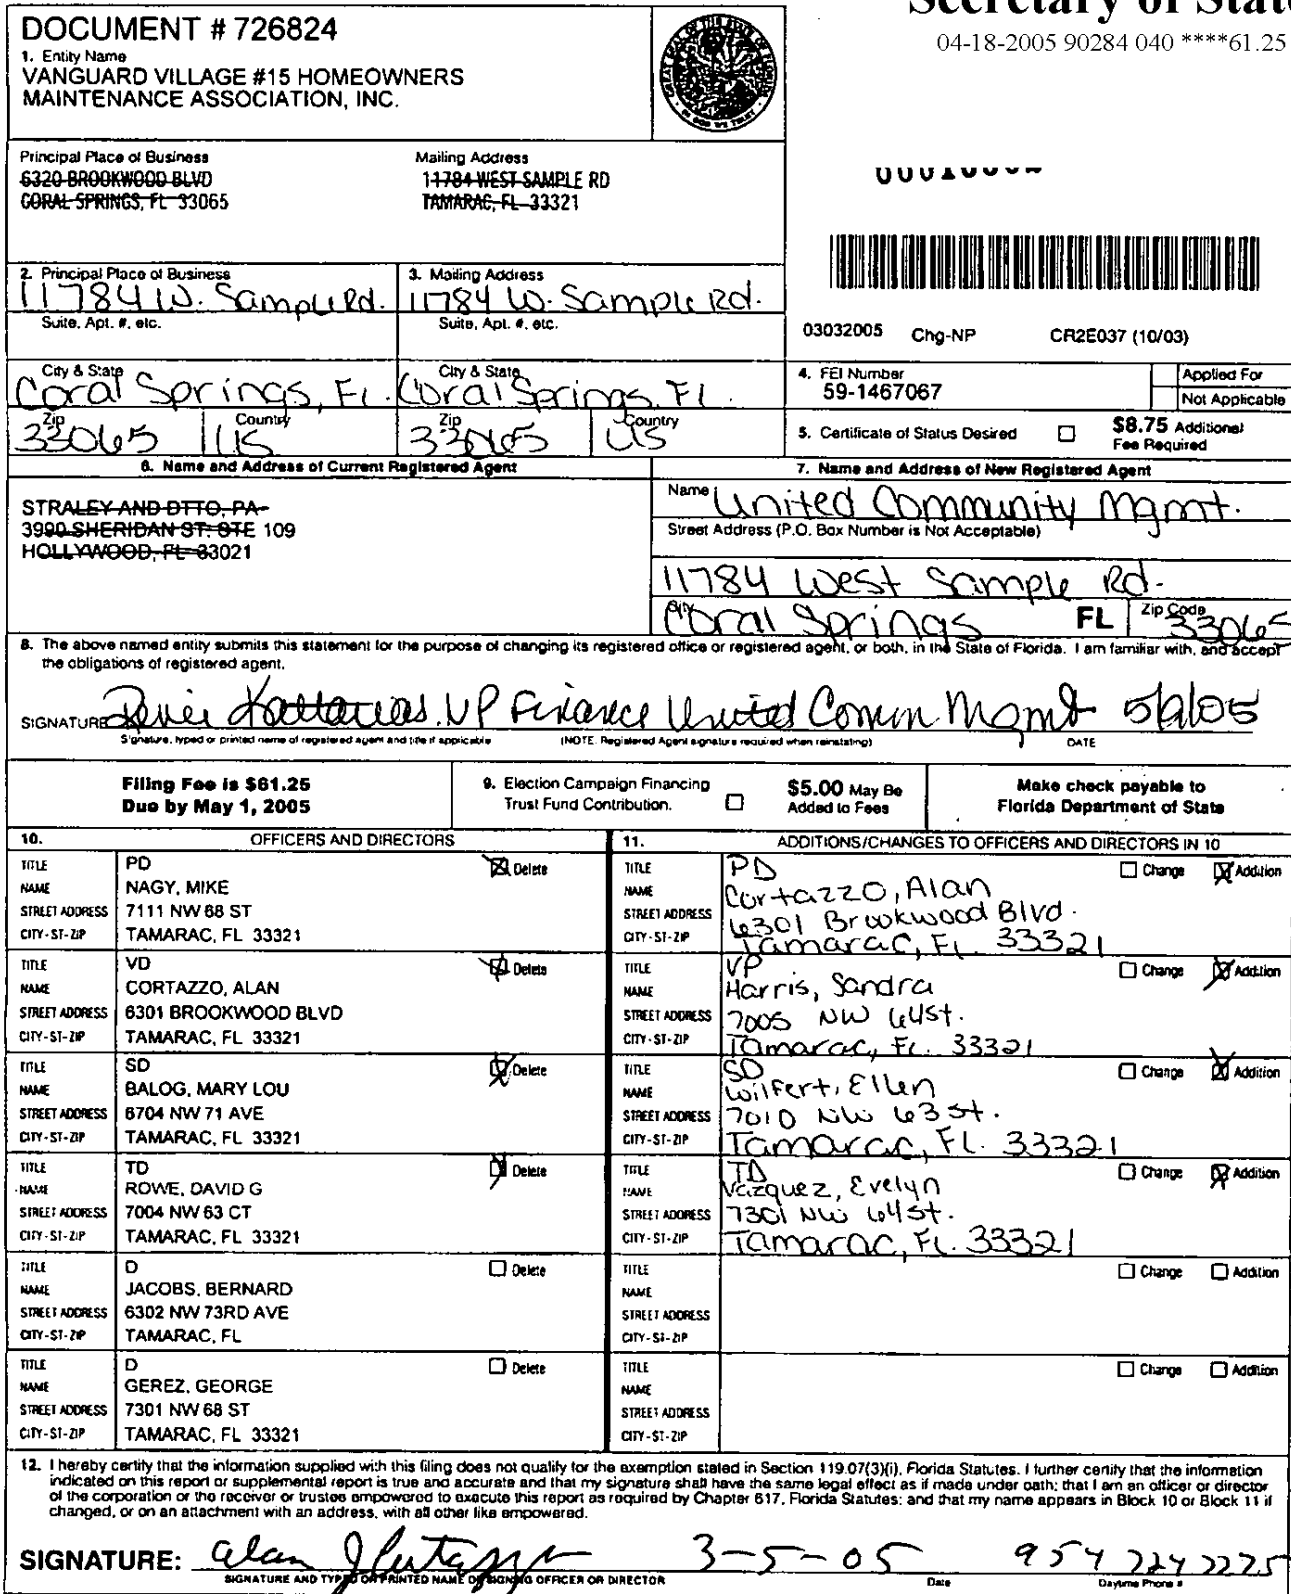 Secretary of State
04-18-2005 90284 040 ****61.25
DOCUMENT # 726824
1. Entity Name
VANGUARD VILLAGE #15 HOMEOWNERS
MAINTENANCE ASSOCIATION, INC.
Principal Place of Business
6320 BROOKWOOD BLVD
CORAL SPRINGS, FL 33065
Mailing Address
11784 WEST SAMPLE RD
TAMARAC, FL 33321
2. Principal Place of Business
11784 W. Sample Rd.
Suite, Apt. #, etc.
City & State
Coral Springs, FL.
Zip
33065
Country
US
3. Mailing Address
11784 W. Sample Rd.
Suite, Apt. #, etc.
City & State
Coral Springs, FL.
Zip
33065
Country
US
03032005 Chg-NP CR2E037 (10/03)
4. FEI Number
59-1467067
Applied For
Not Applicable
5. Certificate of Status Desired
$8.75 Additional
Fee Required
6. Name and Address of Current Registered Agent
STRALEY AND OTTO, PA
3990 SHERIDAN ST. STE 109
HOLLYWOOD, FL 33021
7. Name and Address of New Registered Agent
Name
United Community Mgmt.
Street Address (P.O. Box Number is Not Acceptable)
11784 West Sample Rd.
City
Coral Springs
FL
Zip Code
33065
8. The above named entity submits this statement for the purpose of changing its registered office or registered agent, or both, in the State of Florida. I am familiar with, and accept
the obligations of registered agent.
SIGNATURE VP Finance United Comm Mgmt
Signature, typed or printed name of registered agent and title if applicable
(NOTE: Registered Agent signature required when reinstating)
DATE
Filing Fee is $61.25
Due by May 1, 2005
9. Election Campaign Financing
Trust Fund Contribution.
$5.00 May Be
Added to Fees
Make check payable to
Florida Department of State
10. OFFICERS AND DIRECTORS
TITLE PD Delete
NAME NAGY, MIKE
STREET ADDRESS 7111 NW 68 ST
CITY-ST-ZIP TAMARAC, FL 33321
TITLE VD Delete
NAME CORTAZZO, ALAN
STREET ADDRESS 6301 BROOKWOOD BLVD
CITY-ST-ZIP TAMARAC, FL 33321
TITLE SD Delete
NAME BALOG, MARY LOU
STREET ADDRESS 6704 NW 71 AVE
CITY-ST-ZIP TAMARAC, FL 33321
TITLE TD Delete
NAME ROWE, DAVID G
STREET ADDRESS 7004 NW 63 CT
CITY-ST-ZIP TAMARAC, FL 33321
TITLE D Delete
NAME JACOBS, BERNARD
STREET ADDRESS 6302 NW 73RD AVE
CITY-ST-ZIP TAMARAC, FL
TITLE D Delete
NAME GEREZ, GEORGE
STREET ADDRESS 7301 NW 68 ST
CITY-ST-ZIP TAMARAC, FL 33321
11. ADDITIONS/CHANGES TO OFFICERS AND DIRECTORS IN 10
TITLE PD Change Addition
NAME Cortazzo, Alan
STREET ADDRESS 6301 Brookwood Blvd.
CITY-ST-ZIP Tamarac, FL. 33321
TITLE VP Change Addition
NAME Harris, Sandra
STREET ADDRESS 7005 NW 64 St.
CITY-ST-ZIP Tamarac, FL. 33321
TITLE SD Change Addition
NAME Wilfert, Ellen
STREET ADDRESS 7010 NW 63 St.
CITY-ST-ZIP Tamarac, FL. 33321
TITLE TD Change Addition
NAME Vazquez, Evelyn
STREET ADDRESS 7301 NW 64 St.
CITY-ST-ZIP Tamarac, FL. 33321
TITLE Change Addition
NAME
STREET ADDRESS
CITY-ST-ZIP
TITLE Change Addition
NAME
STREET ADDRESS
CITY-ST-ZIP
12. I hereby certify that the information supplied with this filing does not qualify for the exemption stated in Section 119.07(3)(i), Florida Statutes. I further certify that the information
indicated on this report or supplemental report is true and accurate and that my signature shall have the same legal effect as if made under oath; that I am an officer or director
of the corporation or the receiver or trustee empowered to execute this report as required by Chapter 617, Florida Statutes; and that my name appears in Block 10 or Block 11 if
changed, or on an attachment with an address, with all other like empowered.
SIGNATURE: Alan J Cortazzo 3-5-05 954 724 2275
SIGNATURE AND TYPED OR PRINTED NAME OF SIGNING OFFICER OR DIRECTOR
Date
Daytime Phone #